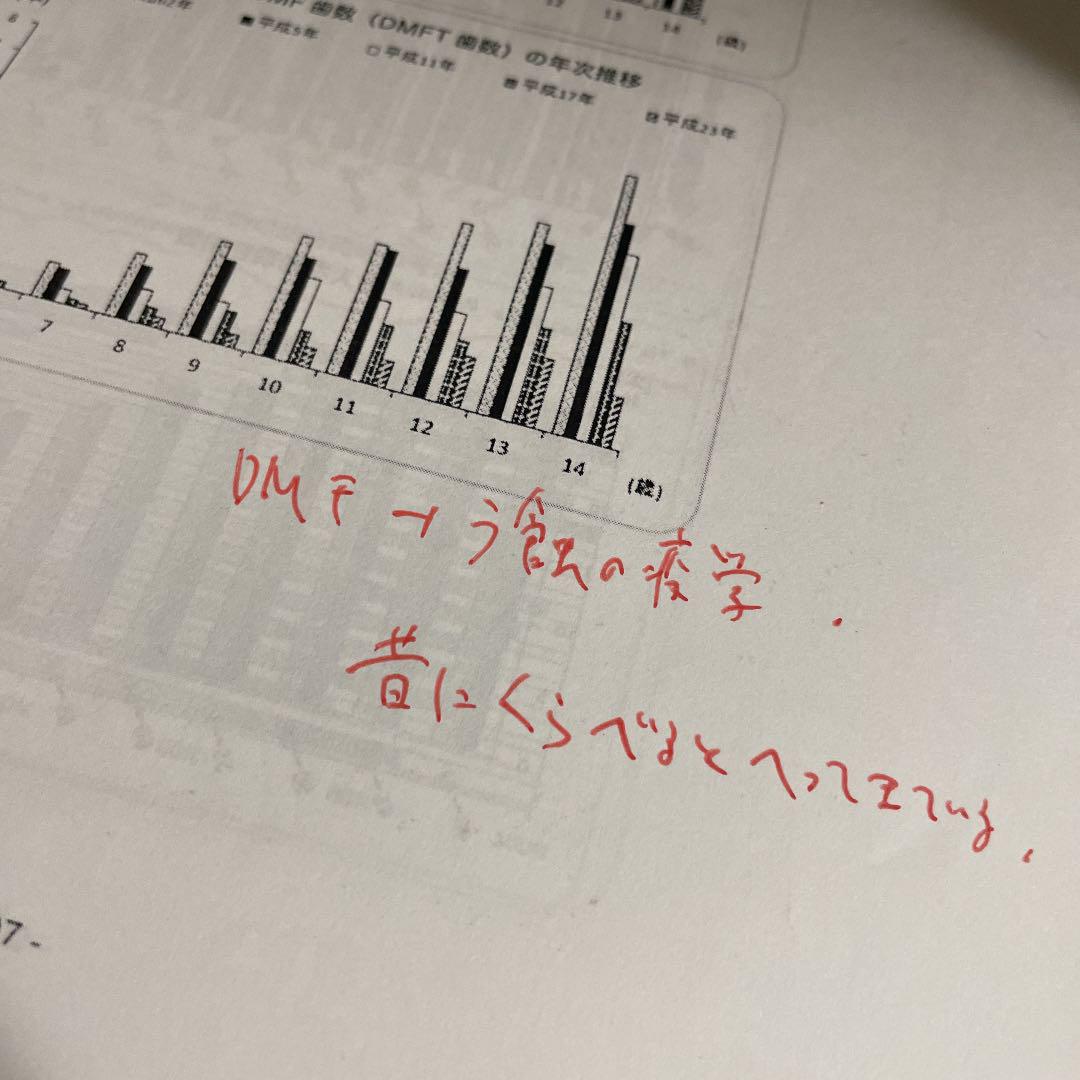 12 13 14 (歳)
MF 歯数（DMFT 歯数）の年次推移
62年
■平成5年
□平成11年
平成17年
平成23年
8
7
7 8 9 10 11 12 13 14 (歳)
DMF → う食の疫学.
昔にくらべるとへってきている.
7 -